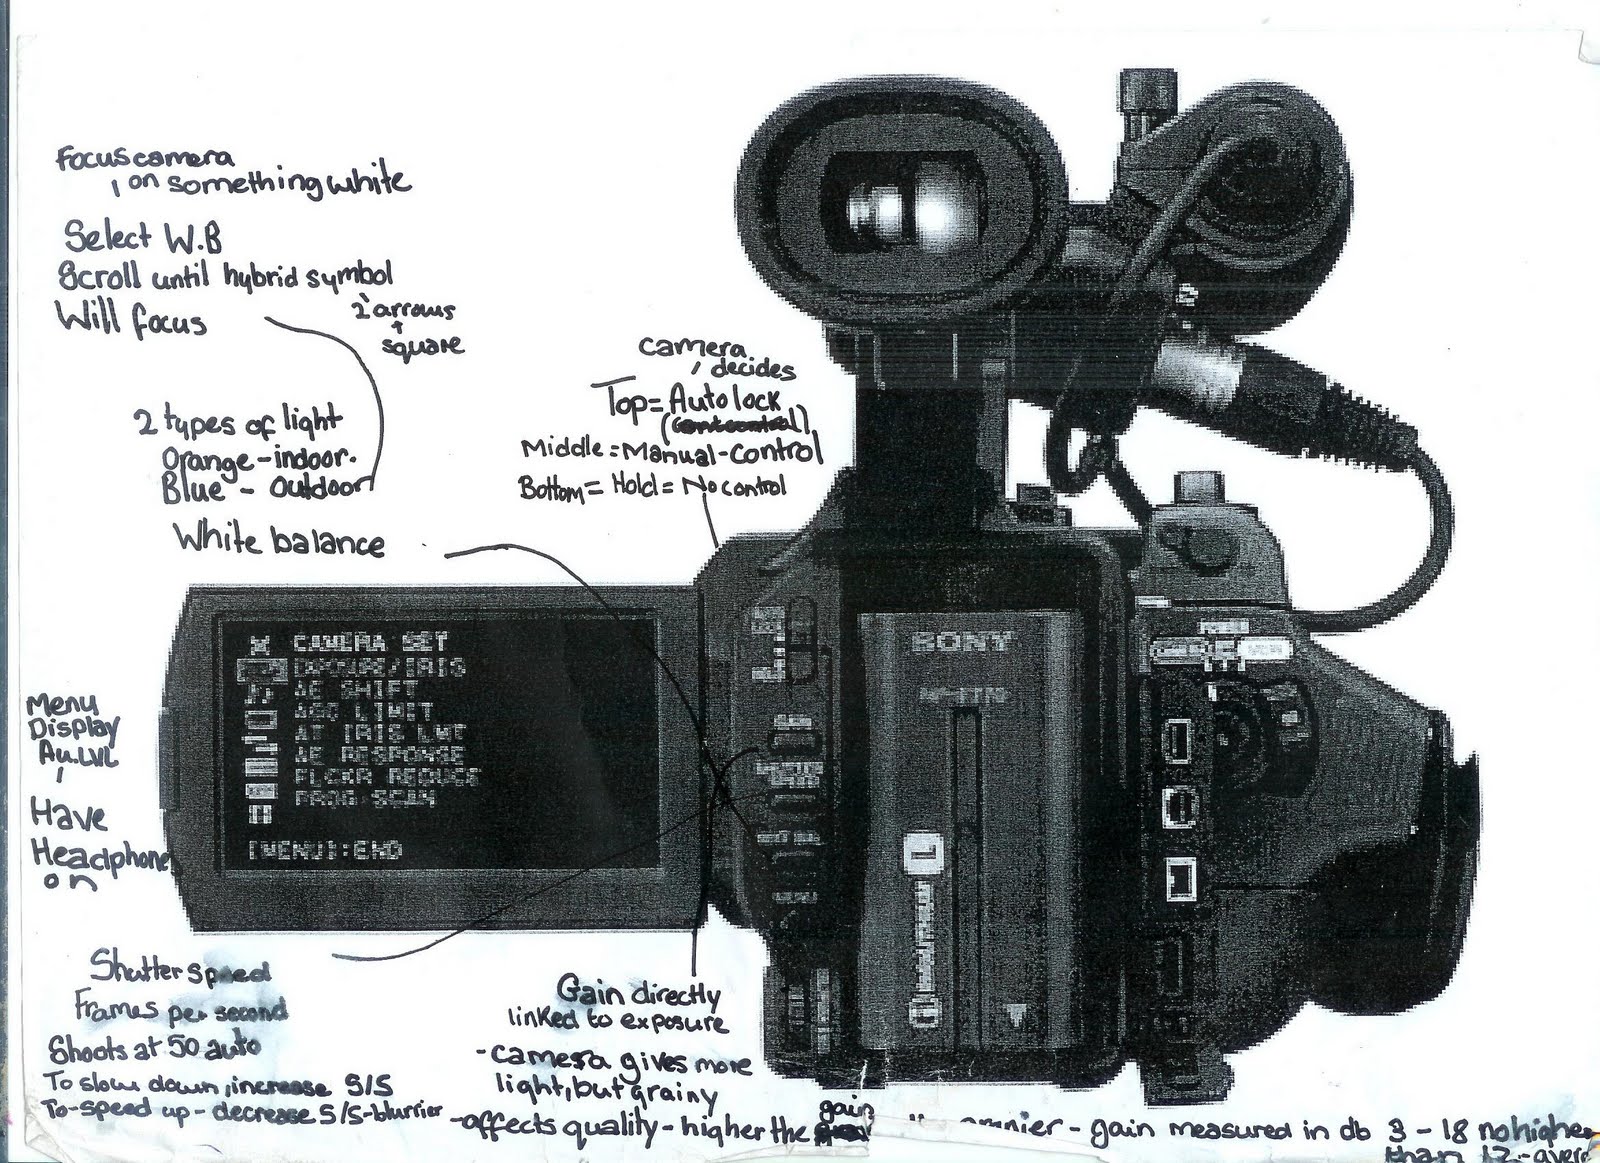 Focus camera
on something white
Select W.B
Scroll until hybrid symbol
2 arrows
+
square
Will focus
2 types of light
Orange - indoor.
Blue - outdoor
White balance
camera
decides
Top = Auto lock
Middle = Manual - control
Bottom = Hold = No control
CAMERA SET
EXPOSURE/IRIS
AE SHIFT
AGC LIMIT
AT IRIS LMT
AE RESPONSE
FLCKR REDUCE
PROG.SCAN
[MENU]:END
SONY
Menu
Display
Au.LVL
Have
Headphone
on
Shutter speed
Frames per second
Shoots at 50 auto
To slow down, increase S/S
To - speed up - decrease S/S - blurrier
Gain directly
linked to exposure
- camera gives more
light, but grainy
- affects quality - higher the gain
- gain measured in db 3 - 18 no higher
than 12 -